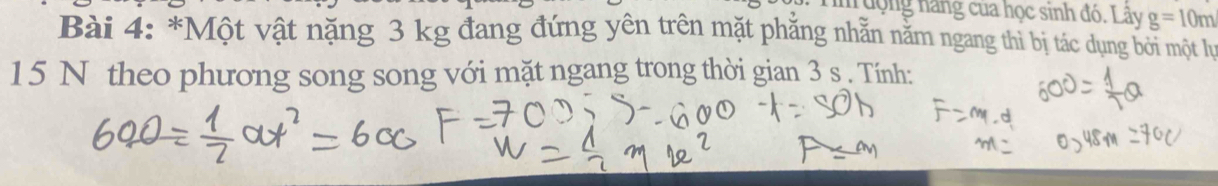 động năng của học sinh đó. Lấy g = 10m/
Bài 4: *Một vật nặng 3 kg đang đứng yên trên mặt phẳng nhẵn nằm ngang thì bị tác dụng bởi một lự
15 N theo phương song song với mặt ngang trong thời gian 3 s . Tính:
600 = 1/2 at² = 600 F = 700 ; S = 600 t = 50s F = m.a 600 = 1/2 a
W = 1/2 m v² F = m m = 0,48m = 700